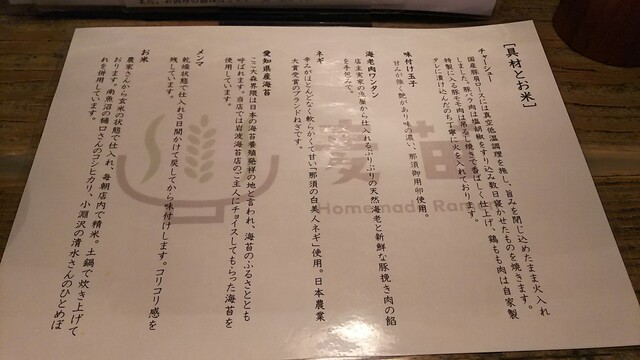 【具材とお米】
チャーシュー
国産豚肩ロースには真空低温調理を施し、旨みを閉じ込めたまま火入れ
しました。豚バラ肉は塩胡椒をすり込み数日寝かせたものを焼きます。
特製に入る豚モモ肉は吊るし焼きで香ばしく仕上げ、鶏もも肉は自家製
タレに漬け込んだのち丁寧に火を入れております。
味付け玉子
甘みが強く艶があり味の濃い、那須御用卵使用。
海老肉ワンタン
店主実家の魚屋から仕入れるぷりぷりの天然海老と新鮮な豚挽き肉の餡
を手包みで。
ネギ
辛みがほとんどなく軟らかくて甘い「那須の白美人ネギ」使用。日本農業
大賞受賞のブランドねぎです。
愛知県産海苔
ここ大森界隈は日本の海苔養殖発祥の地と言われ、海苔のふるさととも
呼ばれます。当店では岩波海苔店のご主人にチョイスしてもらった海苔を
使用しています。
メンマ
乾燥状態で仕入れ3日間かけて戻してから味付けします。コリコリ感を
残しています。
お米
農家さんから玄米の状態で仕入れ、毎朝店内で精米。土鍋で炊き上げて
おります。南魚沼の樋口さんのコシヒカリ、小淵沢の清水さんのひとめぼ
れを併用しています。
麦苗
Homemade Ram